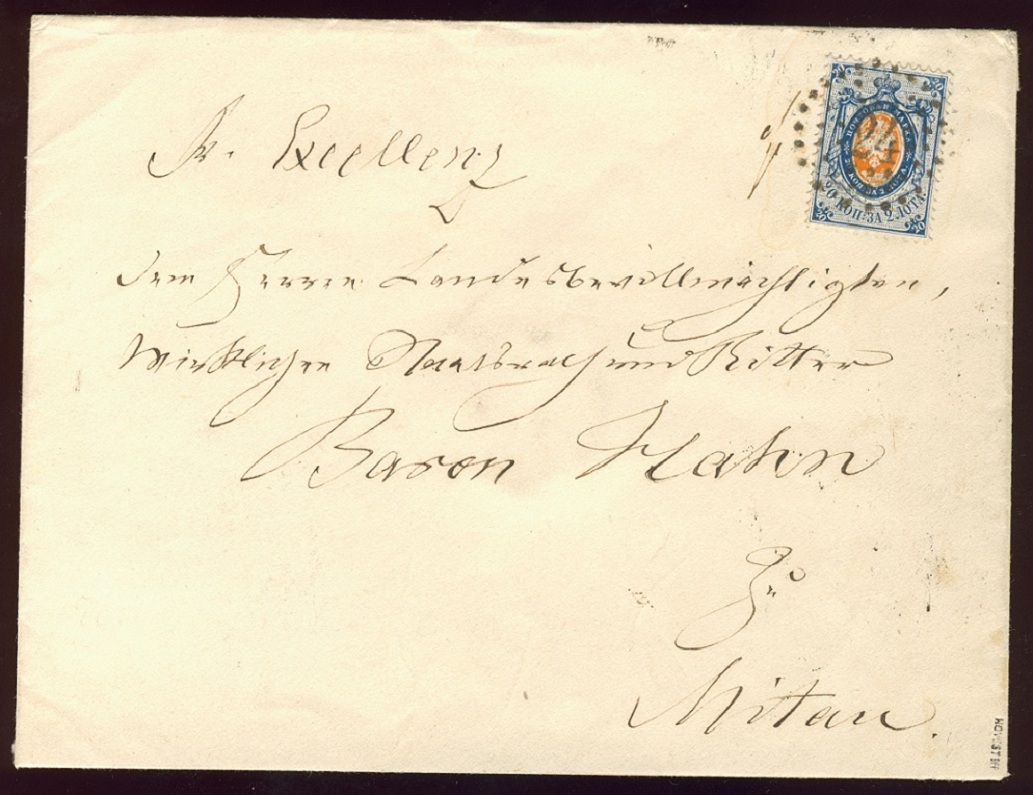 Sr. Excellenz
dem Herrn Landesbevollmächtigten,
Wirklichen Staatsrath und Ritter
Baron Hahn
zu
Mitau.
20 20
ПОЧТОВАЯ МАРКА
20 КОП. ЗА 2 ЛОТА.
20 КОП: ЗА 2 ЛОТА.
20 20